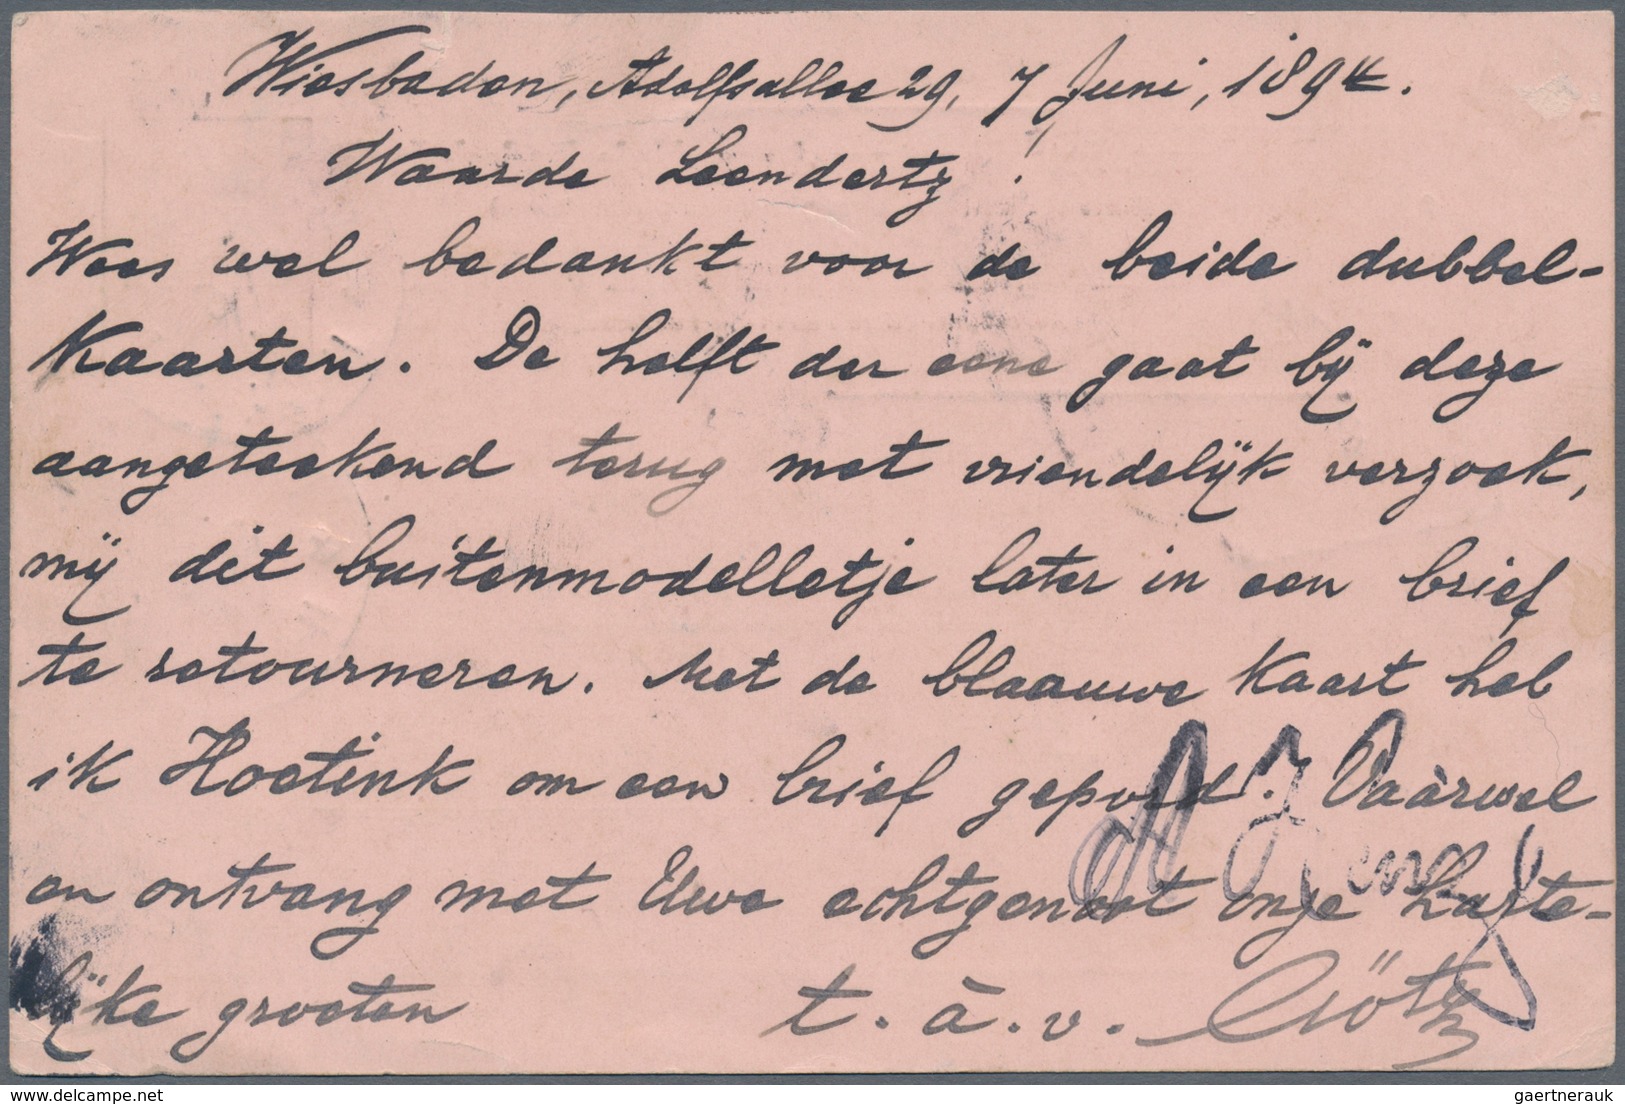 Wiesbaden, Adolfsallee 29, 7 Juni, 1894.
Waarde Leendertz!
Wees wel bedankt voor de beide dubbel-
kaarten. De helft der eene gaat bij deze
aangeteekend terug met vriendelijk verzoek,
mij dit buitenmodelletje later in een brief
te retourneren. Met de blaauwe kaart heb
ik Hoetink om een brief gepord. Vaàrwel
en ontvang met Uwe echtgenoot onze harte-
lijke groeten t. à. v. Götz
delcampe.net
gaertnerauk